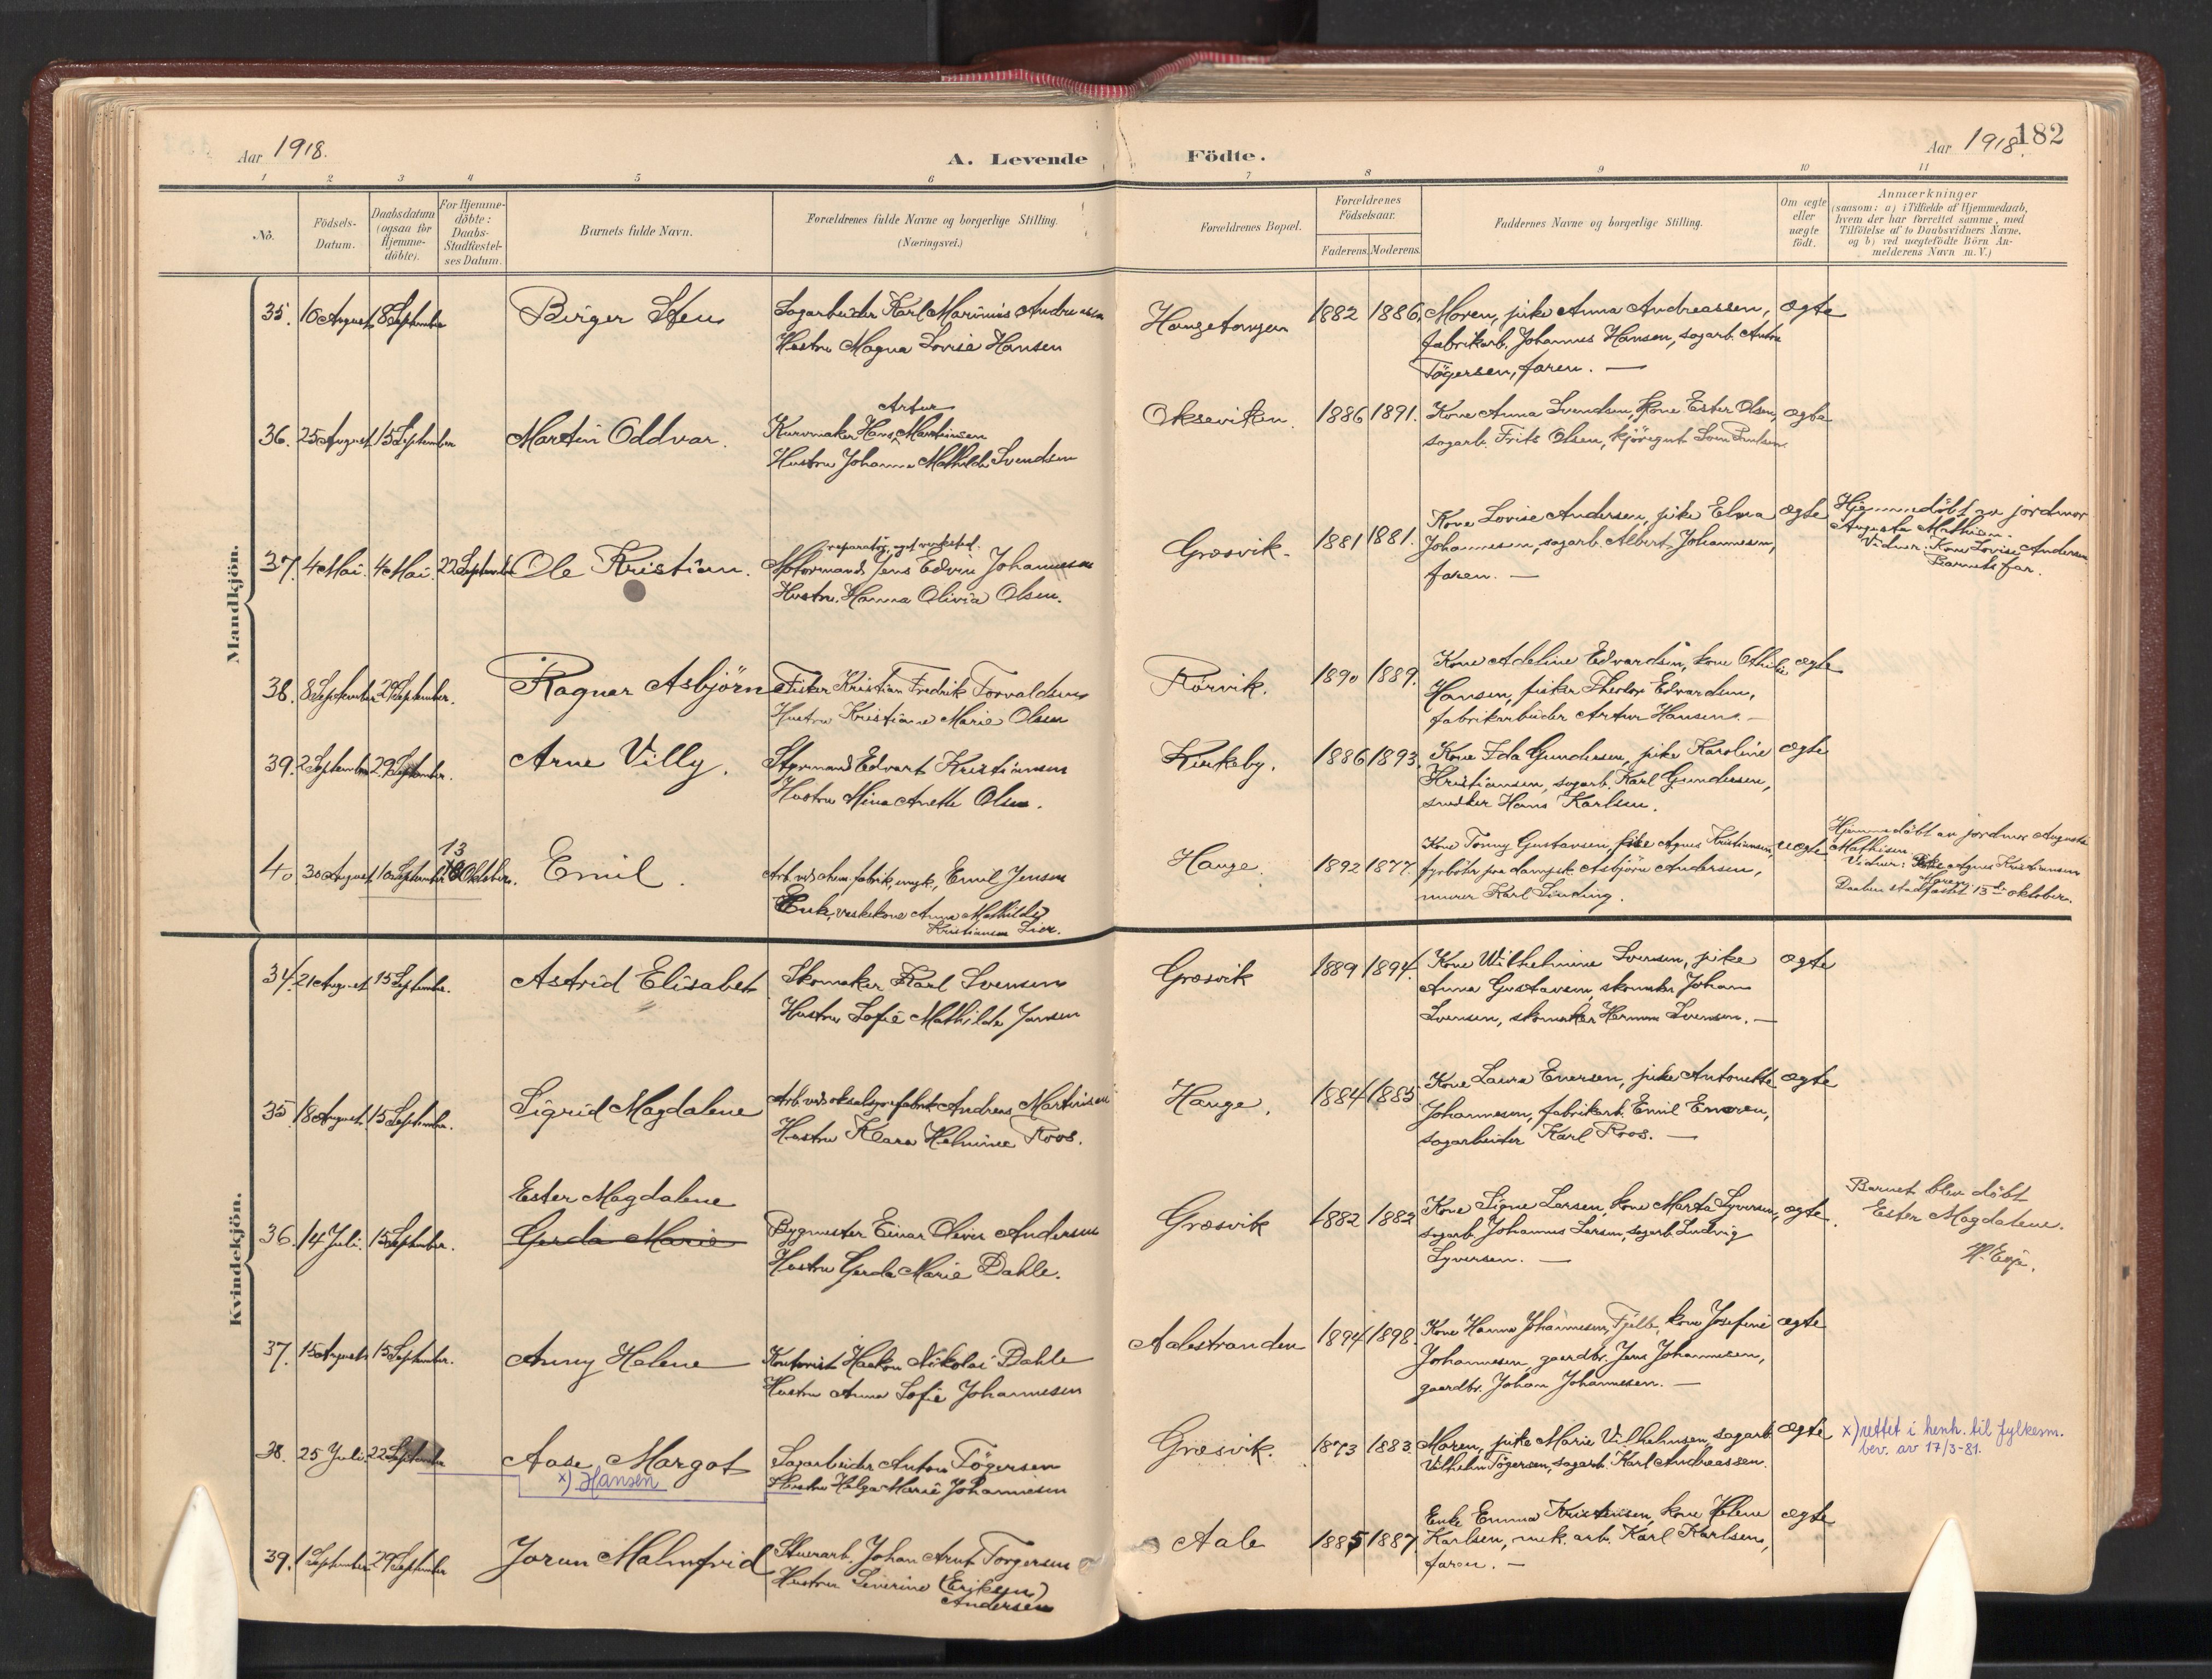 Aar 1918.
A. Levende Födte.
Aar 1918.
182
1 2 3 4 5 6 7 8 9 10 11
No.
Födsels-Datum.
Daabsdatum (ogsaa for Hjemme-döbte).
For Hjemme-döbte: Daabs-Stadfæstel-ses Datum.
Barnets fulde Navn.
Forældrenes fulde Navne og borgerlige Stilling.
(Næringsvei.)
Forældrenes Bopæl.
Forældrenes Födselsaar.
Faderens. Moderens.
Faddernes Navne og borgerlige Stilling.
Om ægte eller uægte födt.
Anmærkninger
(saasom: a) i Tilfælde af Hjemmedaab,
hvem der har forrettet samme, med
Tilföielse af to Daabsvidners Navne,
og b) ved uægtefödte Börn An-
melderens Navn m. V.)
Mandkjön.
35. 16 August 8 September Birger Sten Sagarbeider Karl Marinius Andreassen Haugetangen 1882 1886. Moren, pike Anna Andreassen, ægte
Hustru Magna Lovise Hansen fabrikarb. Johannes Hansen, sagarb. Anton
Tögersen, faren. —
Artur
36. 25 August 15 September Martin Oddvar. Kurvmaker Hans Martinsen Okseviken. 1886 1891. Kone Anna Svendsen, kone Ester Olsen, ægte
Hustru Johanne Mathilde Svendsen sagarb. Frits Olsen, kjöregut
reparatör, eget verksted.
37. 4 Mai. 4 Mai. 22 September Ole Kristian. Motormand Jens Edvin Johannessen Græsvik. 1881 1881. Kone Lovise Andersen, pike Elma ægte Hjemmedöbt av jordmor
Hustru Hanna Olivia Olsen. Johannesen, sagarb. Albert Johannesen, Augusta Mathisen.
faren. — Vidner: Kone Lovise Andersen
Barnets far.
38. 8 September 29 September. Ragnar Asbjörn Fisker Kristian Fredrik Torvaldsen Rörvik. 1890 1889. Kone Adeline Edvardsen, kone Othilie ægte
Hustru Kristiane Marie Olsen Hansen, fisker Theodor Edvardsen,
fabrikarbeider Artur Hansen. —
39. 2 September 29 September. Arne Villy. Styrmand Edvart Kristiansen Kirkeby. 1886 1893. Kone Ida Gundersen, pike Karoline ægte
Hustru Mina Anette Olsen. Kristiansen, sagarb. Karl Gundersen,
snedker Hans Karlsen.
13
40. 30 August 10 September Oktober. Emil. Arb. ved chem. fabrik, ungk., Emil Jensen Hauge. 1892 1877. Kone Tonny Gustavsen, pike Agnes Kristiansen, uægte Hjemmedöbt av jordmor Augusta
Enke, vaskekone Anna Mathilde fyrböter paa dampsk. Asbjörn Andersen, Mathisen.
Kristiansen Lier. murer Karl Sinding. Vidner: Pike Agnes Kristiansen
Moren.
Daaben stadfæstet 13de oktober.
Kvindekjön.
34. 21 August 15 September. Astrid Elisabet Skomaker Karl Svensen Græsvik 1889 1894. Kone Wilhelmine Svensen, pike ægte
Hustru Sofie Mathilde Jansen Anna Gustavsen, skomaker Johan
Svensen, skomaker Herman Svensen. —
35. 18 August 15 September. Sigrid Magdalene Arb. ved oksalsyrefabrik Andreas Martinsen Hauge. 1884 1885 Kone Laura Enersen, pike Antonette ægte
Hustru Klara Helmine Roos. Johannesen, fabrikarb. Emil Enersen,
sagarbeider Karl Roos. —
Ester Magdalene
36. 14 Juli. 15 September. Gerda Marie Bygmester Einar Oliver Andersen Græsvik 1882 1882 Kone Signe Larsen, kone Marta Syversen, ægte. Barnet blev döbt
Hustru Gerda Marie Dahle. sagarb. Johannes Larsen, sagarb. Ludvig Ester Magdalene.
Syversen. — H. Evje.
37. 15 August 15 September. Anny Helene Kontorist Haakon Nikolai Dahle Aalestranden 1894 1898. Kone Hanna Johannesen, Fjelle, kone Josefine ægte
Hustru Anna Sofie Johannesen Johannesen, gaardbr. Jens Johannesen,
gaardbr. Johan Johannesen. —
38. 25 Juli 22 September Aase Margot Sagarbeider Anton Tögersen Græsvik. 1873 1883. Moren, pike Marie Vilhelmsen, sagarb. ægte x) rettet i henh. til fylkesm.
x) Hansen Hustru Helga Marie Johannesen Vilhelm Tögersen, sagarb. Karl Andreassen. bev. av 17/3-81.
39. 1 September 29 September Jorun Malmfrid Stuerarb. Johan Arnt Torgersen Aale 1885 1887. Enke Emma Kristensen, kone Helene ægte
Hustru Severine (Eriksen) Karlsen, mek. arb. Karl Karlsen,
Andersen faren. —